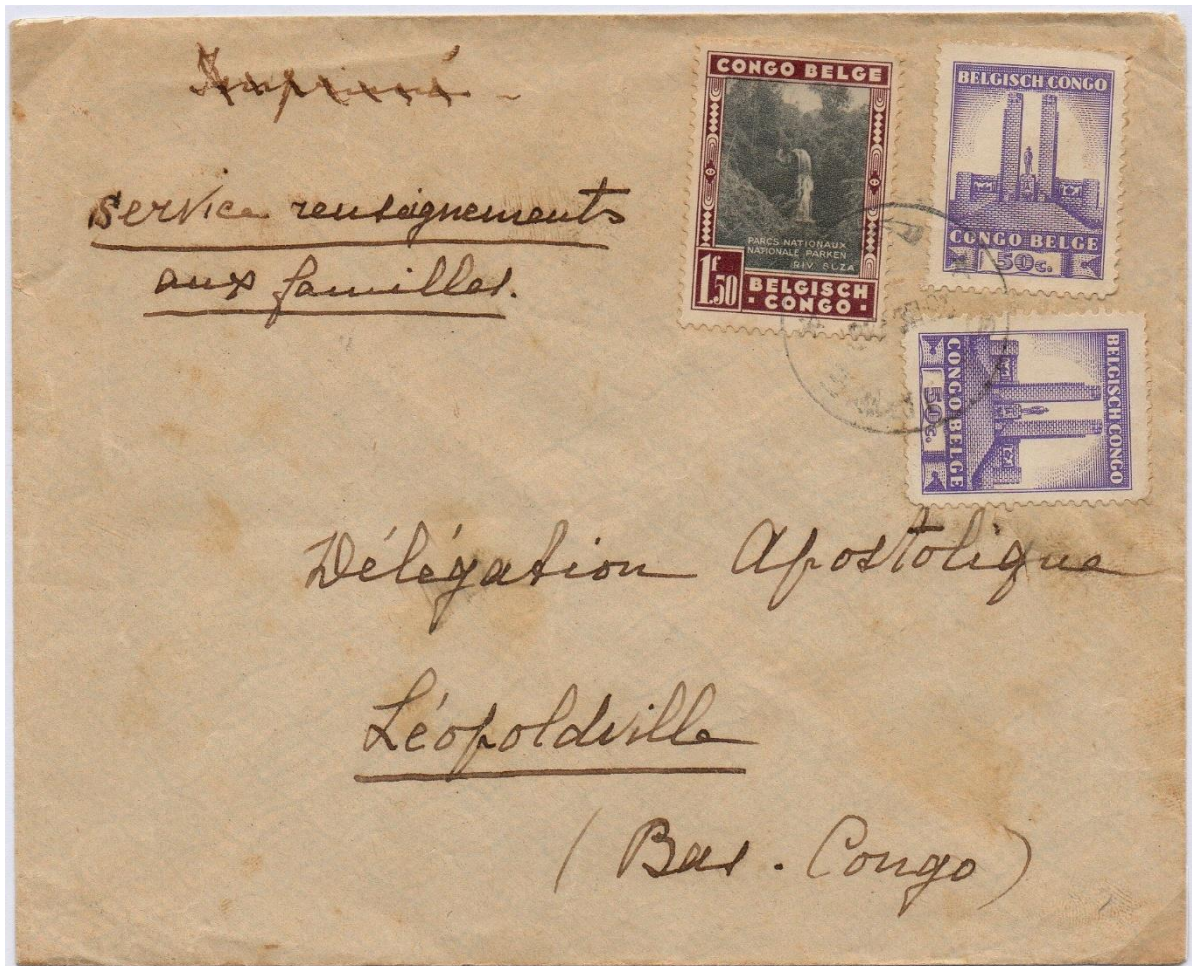 Imprimé
service renseignements
aux familles.
CONGO BELGE
PARCS NATIONAUX
NATIONALE PARKEN
RIV. SUZA
1f50
BELGISCH
CONGO
BELGISCH CONGO
CONGO BELGE
50c.
BELGISCH CONGO
CONGO BELGE
50c.
Délégation Apostolique
Léopoldville
(Bas-Congo)